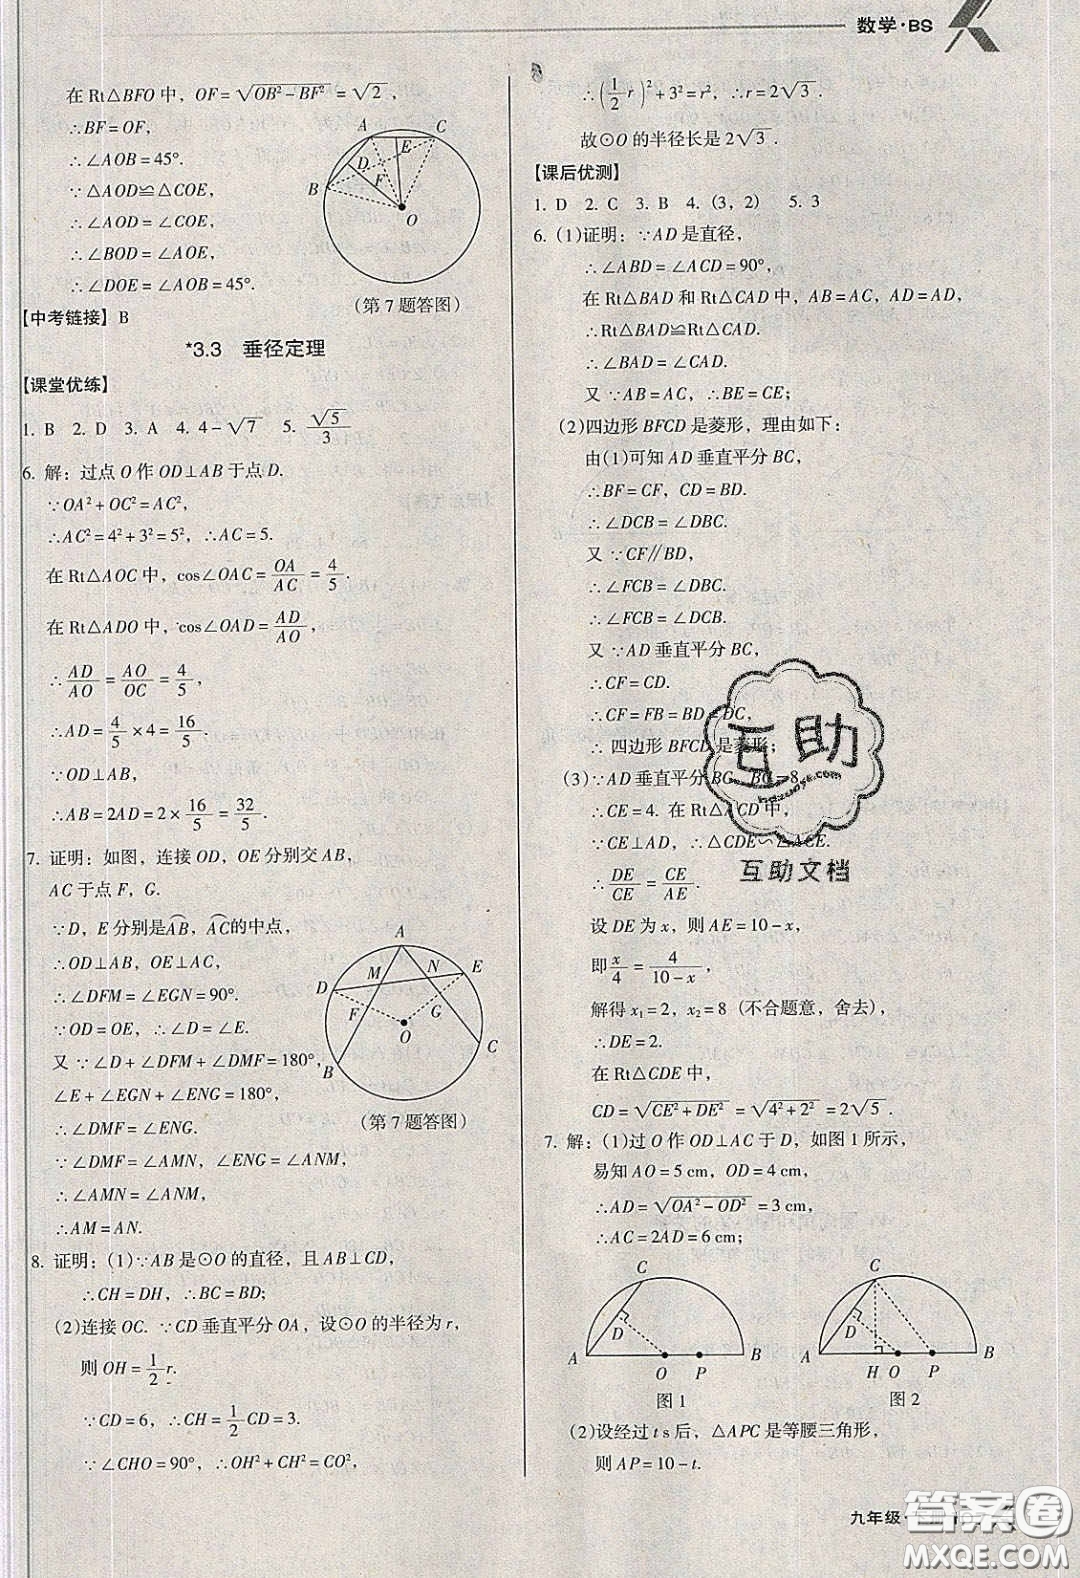 数学·BS
在 Rt△BFO 中，OF=√(OB²-BF²)=√2，
∴BF=OF，
∴∠AOB=45°.
∵△AOD≌△COE，
∴∠AOD=∠COE，
∴∠BOD=∠AOE，
∴∠DOE=∠AOB=45°.
A C
E
D
B F
O
(第 7 题答图)
【中考链接】B
*3.3 垂径定理
【课堂优练】
1. B 2. D 3. A 4. 4-√7 5. √5/3
6. 解：过点 O 作 OD⊥AB 于点 D.
∵OA²+OC²=AC²，
∴AC²=4²+3²=5²，∴AC=5.
在 Rt△AOC 中，cos∠OAC=OA/AC=4/5.
在Rt△ADO 中，cos∠OAD=AD/AO，
∴AD/AO=AO/OC=4/5，
∴AD=4/5×4=16/5，
∵OD⊥AB，
∴AB=2AD=2×16/5=32/5.
7. 证明：如图，连接 OD，OE 分别交 AB，
AC 于点 F，G.
∵D，E 分别是AB，AC的中点，
∴OD⊥AB，OE⊥AC，
∴∠DFM=∠EGN=90°.
∵OD=OE，∴∠D=∠E.
又 ∵∠D+∠DFM+∠DMF=180°，
∠E+∠EGN+∠ENG=180°，
∴∠DMF=∠ENG.
∵∠DMF=∠AMN，∠ENG=∠ANM，
∴∠AMN=∠ANM，
∴AM=AN.
A
M N E
D
F G
O
B C
(第 7 题答图)
8. 证明：(1)∵AB 是⊙O 的直径，且 AB⊥CD，
∴CH=DH，∴BC=BD；
(2)连接 OC. ∵CD 垂直平分 OA，设⊙O 的半径为 r，
则 OH=1/2 r.
∵CD=6，∴CH=1/2 CD=3.
∵∠CHO=90°，∴OH²+CH²=CO²，
∴(1/2 r)²+3²=r²，∴r=2√3.
故⊙O 的半径长是 2√3.
【课后优测】
1. D 2. C 3. B 4. (3，2) 5. 3
6. (1)证明：∵AD 是直径，
∴∠ABD=∠ACD=90°，
在 Rt△BAD 和 Rt△CAD 中，AB=AC，AD=AD，
∴Rt△BAD≌Rt△CAD，
∴∠BAD=∠CAD，
又 ∵AB=AC，∴BE=CE；
(2)四边形 BFCD 是菱形，理由如下：
由(1)可知 AD 垂直平分 BC，
∴BF=CF，CD=BD，
∴∠DCB=∠DBC.
又 ∵CF∥BD，
∴∠FCB=∠DBC，
∴∠FCB=∠DCB.
又 ∵AD 垂直平分 BC，
∴CF=CD.
∴CF=FB=BD=DC，
∴ 四边形 BFCD 是菱形；
(3)∵AD 垂直平分 BC，BC=8，
∴CE=4. 在 Rt△ACD 中，
∵CE⊥AD，∴△CDE∽△ACE.
∴DE/CE=CE/AE.
设 DE 为 x，则 AE=10-x，
即x/4=4/(10-x)，
解得 x₁=2，x₂=8（不合题意，舍去），
∴DE=2.
在 Rt△CDE 中，
CD=√(CE²+DE²)=√(4²+2²)=2√5.
7. 解：(1)过 O 作 OD⊥AC 于 D，如图 1 所示，
易知 AO=5 cm，OD=4 cm，
∴AD=√(OA²-OD²)=3 cm，
∴AC=2AD=6 cm.
C
D
A O P B
图 1
C
D
A H O P B
图 2
(2)设经过 t s 后，△APC 是等腰三角形，
则 AP=10-t.
互助
huzhuwd.com
互助文档
九年级·
答案圈
MXQE.COM